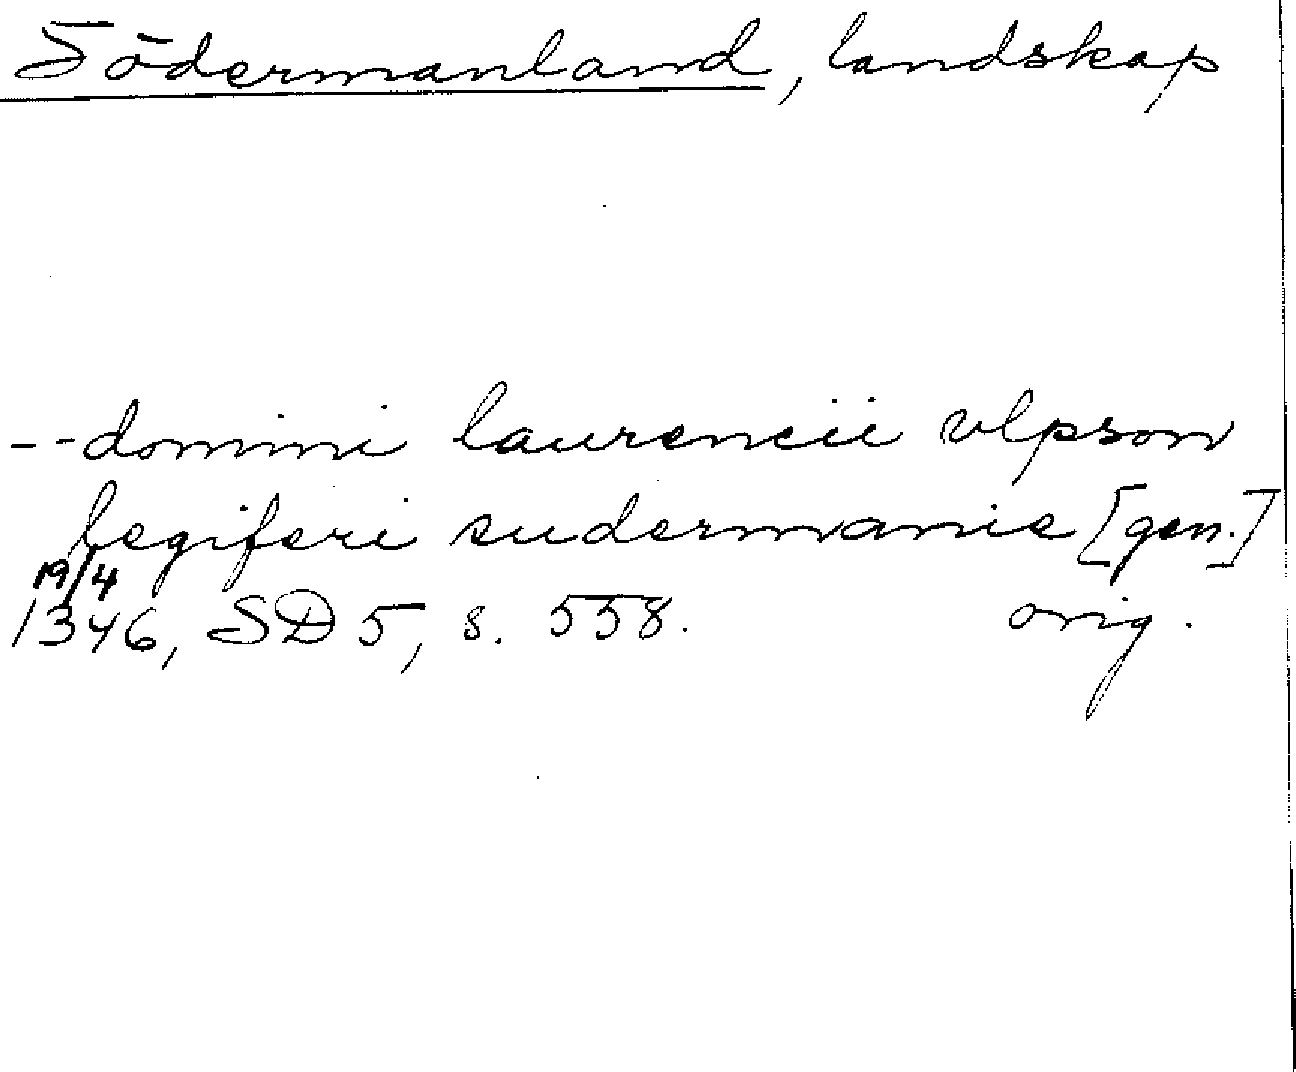 Södermanland, landskap
-- domini laurencii vlpson
legiferi sudermanie [gen.]
19/4
1346, SD 5, s. 558. orig.